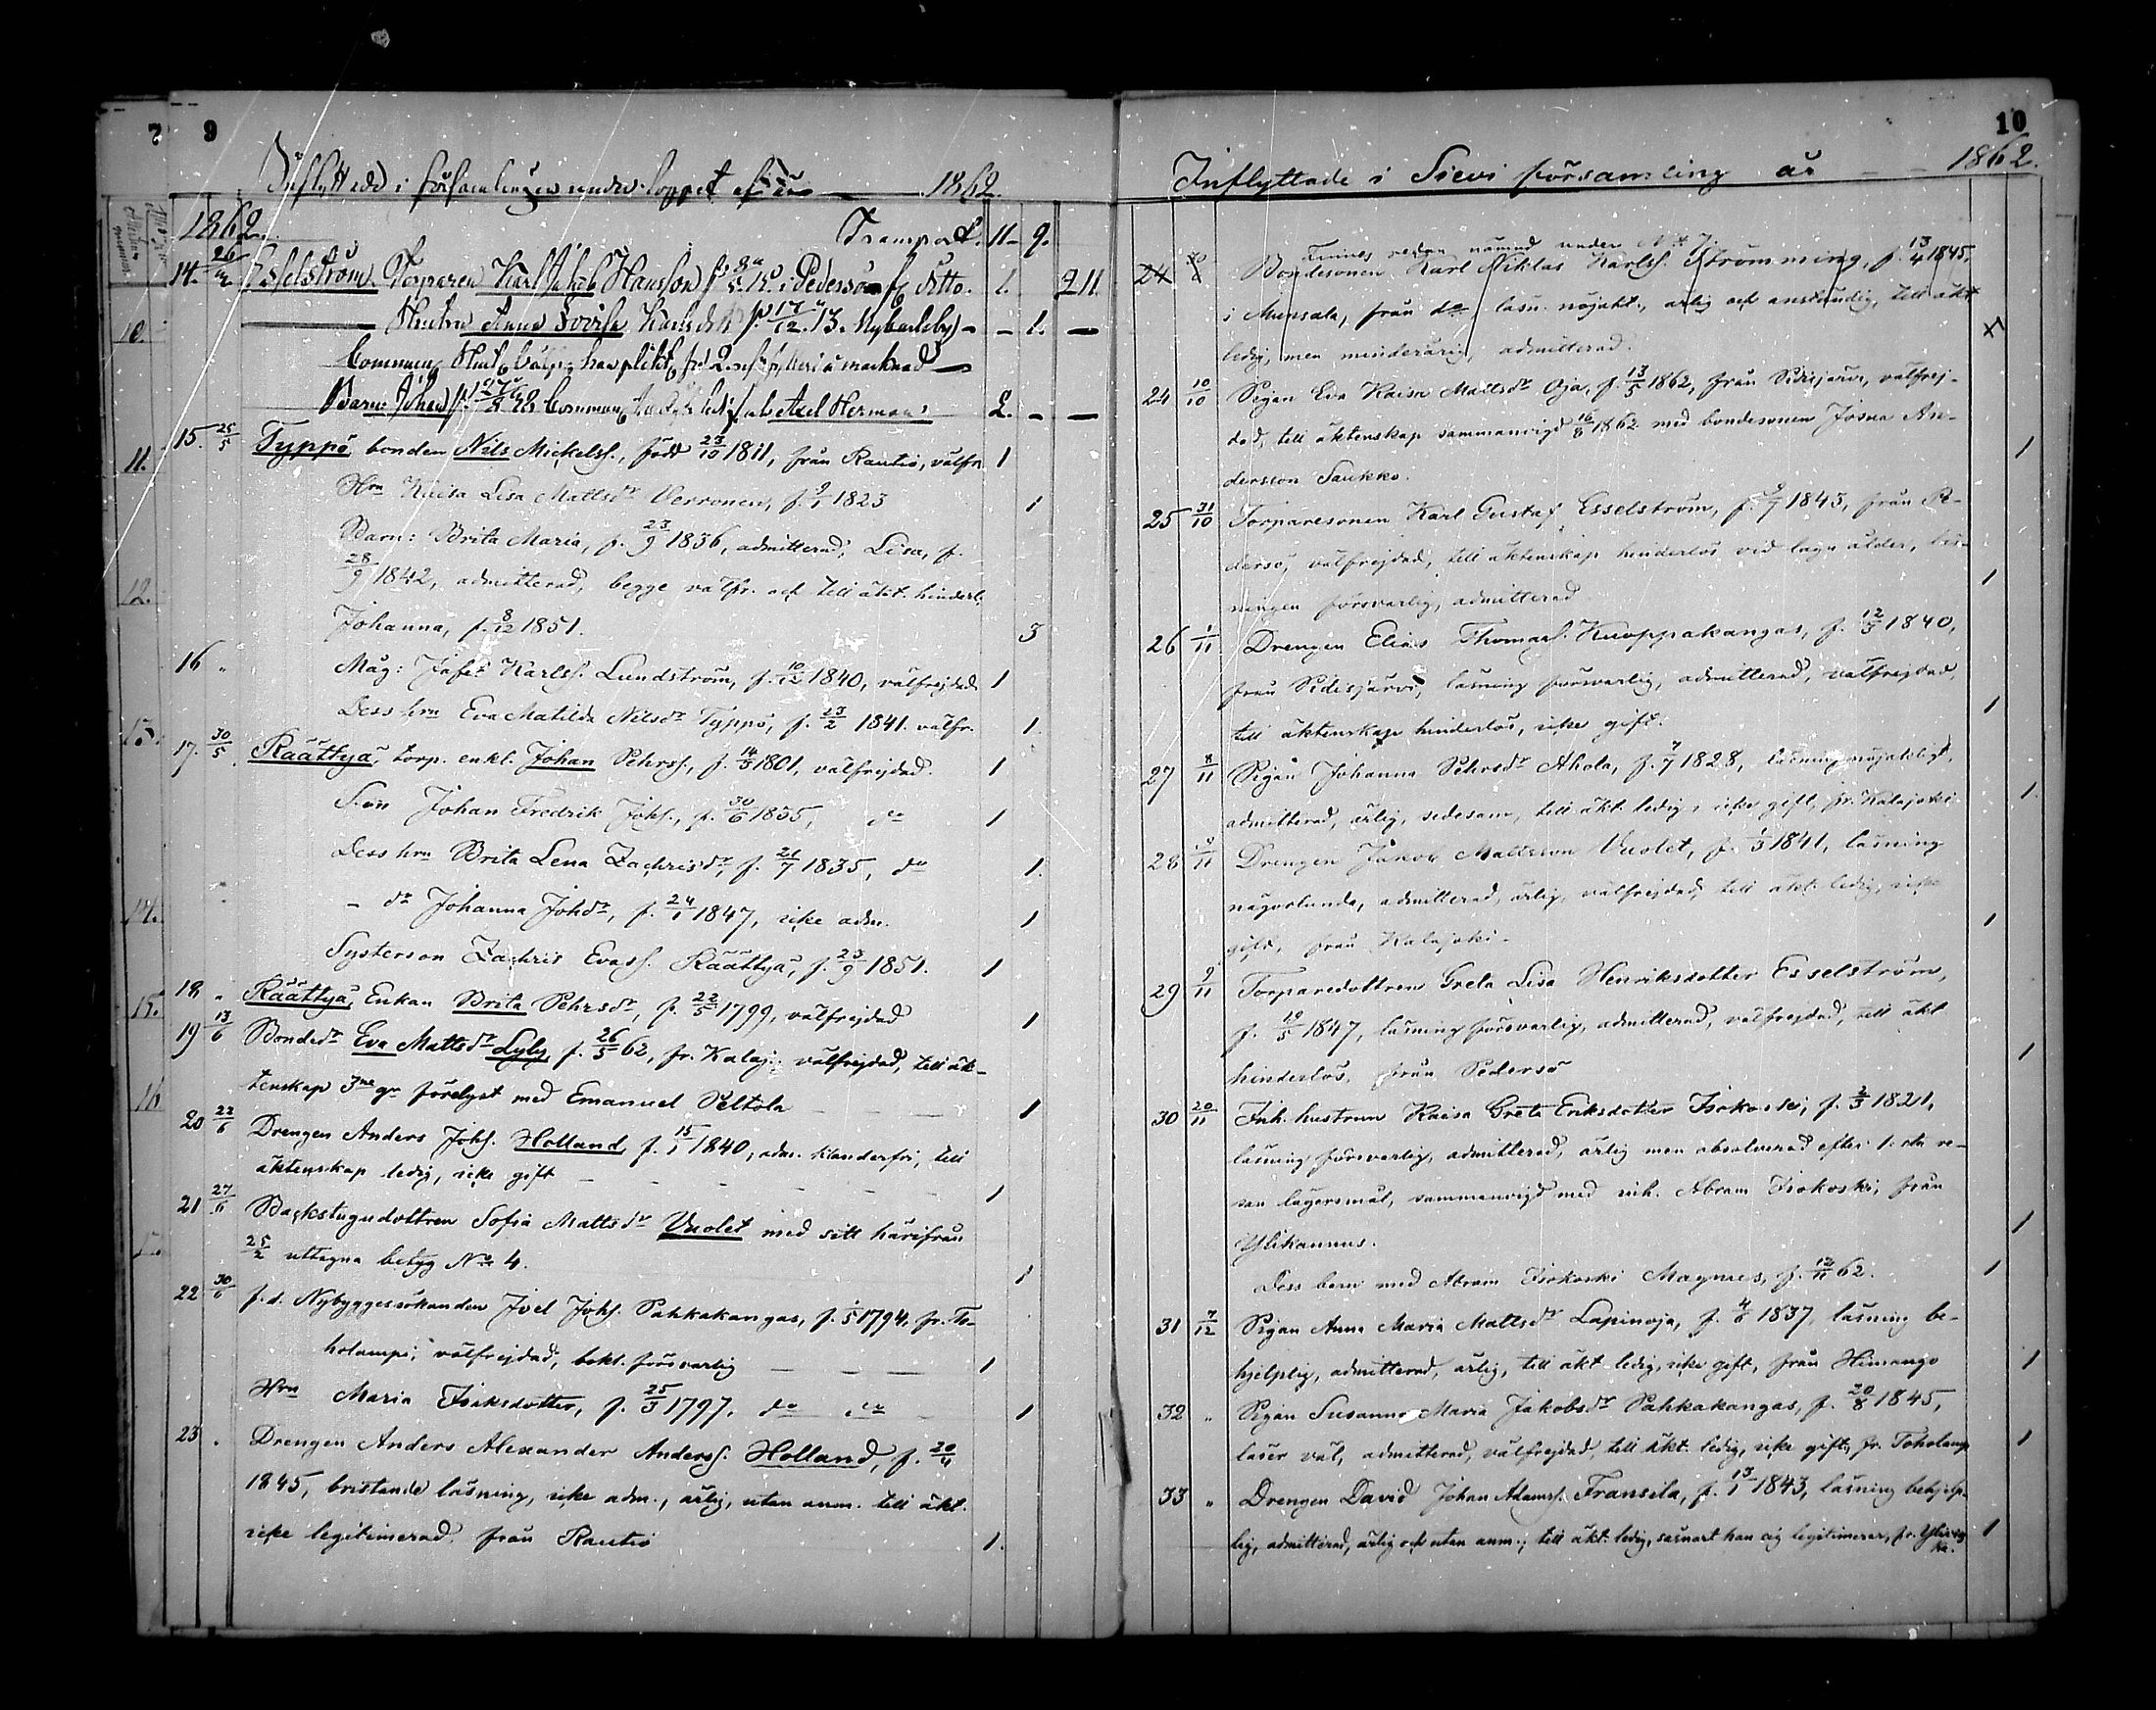 7 9
Inflyttade i församlingen under loppet af år 1862.
1862. Transport. 11. 9.
14. 26/12 Esselström. Torparen Karl Jakob Hansson i Pedersö ditto. 1. 211.
10. Hustru Anna Lovisa Karlsdr f. 17/12 13. Nykarleby 1.
Barn: Johan f. Axel Herman: 2.
11. 15. 25/5 Typpö, bonden Nils Mickelss., född 23/10 1811, från Rautio, välfr. 1
Hru Kaisa Lisa Mattsdr Verronen, f. 9/1 1823 1
Barn: Brita Maria, f. 23/9 1836, admitterad; Lisa, f.
12. 28/9 1842, admitterad, begge välfr. och till äkt. hinderl.
Johanna, f. 8/12 1851. 3
16 " Måg: Jafet Karlss. Lundström, f. 10/12 1840, välfrejdad. 1
Dess hru Eva Matilda Nilsdr Typpö, f. 23/2 1841. välfr. 1.
13. 17. 30/5 Räättyä, torp. enkl. Johan Pehrss., f. 14/3 1801, välfrejdad. 1
Son Johan Fredrik Johs., f. 30/6 1835, do 1
Dess hru Brita Lena Zachrisdr, f. 21/7 1835, do 1.
14. - dr Johanna Johdr, f. 24/1 1847, icke adm. 1
Systerson Zachris Evass. Räättyä, f. 23/9 1851. 1
15. 18 " Räättyä, Enkan Brita Pehrsdr, f. 22/5 1799, välfrejdad 1
19 13/6 Bondedr Eva Mattsdr Lyly, f. 26/5 62, fr. Kalaj. välfrejdad, till äk-
16 tenskap 3ne gr förelyst med Emanuel Peltola 1
20 22/6 Drengen Anders Johs. Holland, f. 15/1 1840, adm. klanderfri, till
äktenskap ledig, icke gift 1
21 27/6 Backstugudottren Sofia Mattsdr Vuolet med sitt härifrån
25/2 uttagna betyg No 4. 1
22 30/6 f.d. Nybyggessökanden Joel Johs. Pahkakangas, f. 1/5 1794, fr. To-
holampi; välfrejdad, bekl. försvarlig 1
Hru Maria Isaksdotter, f. 25/3 1797. do do 1
23 " Drengen Anders Alexander Anderss. Holland, f. 20/4
1845, bristande läsning, icke adm., ärlig, utan anm. till äkt.
icke legitimerad från Rautio 1.
10
Inflyttade i Sievi församling år 1862.
Finnes redan nämnd under No 7.
24 Bondesonen Karl Niklas Karlss. Strömming, f. 13/4 1845,
i Munsala, från do, läsn. nöjakt., ärlig och anständig, till äkt
ledig, men minderårig, admitterad. x
24 10/10 Pigan Eva Kaisa Mattsdr Oja, f. 13/5 1862, från Pidisjärvi, välfrej-
dad, till äktenskap sammanvigd 16/8 1862 med bondesonen Josua An-
dersson Saukko. 1
25 31/10 Torparesonen Karl Gustaf Esselström, f. 9/7 1843, från Pe-
dersö, välfrejdad, till äktenskap hinderlös vid laga ålder, läs-
ningen försvarlig, admitterad 1
26 1/11 Drengen Elias Thomass. Knoppakangas, f. 12/3 1840,
från Pidisjärvi, läsning försvarlig, admitterad, välfrejdad,
till äktenskap hinderlös, icke gift. 1
27 8/11 Pigan Johanna Pehrsdr Ahola, f. 7/7 1828, läsning nöjaktigt,
admitterad, ärlig, sedesam, till äkt. ledig, icke gift, fr. Kalajoki. 1
28 9/11 Drengen Jakob Mattsson Vuolet, f. 1/3 1841, läsning
någorlunda, admitterad, ärlig, välfrejdad, till äkt. ledig, icke
gift, från Kalajoki. 1
29 9/11 Torparedottren Greta Lisa Henriksdotter Esselström,
f. 19/5 1847, läsning försvarlig, admitterad, välfrejdad, till äkt
hinderlös, från Pedersö 1
30 20/11 Inh. hustrun Kaisa Greta Eriksdotter Isokoski, f. 2/3 1821,
läsning försvarlig, admitterad, ärlig men absolverad efter 1:sta re-
san lägersmål, sammanvigd med inh. Abram Isokoski, från
Ylikannus. 1
Dess barn med Abram Isokoski Magnus, f. 12/11 62. 1
31 7/12 Pigan Anna Maria Mattsdr Lapinoja, f. 4/6 1837, läsning be-
hjelplig, admitterad, ärlig, till äkt ledig, icke gift, från Himango 1
32 " Pigan Susanna Maria Jakobsdr Pahkakangas, f. 20/8 1845,
läser väl, admitterad, välfrejdad, till äkt. ledig, icke gift, fr. Toholamp 1
33 " Drengen David Johan Adamss. Fransila, f. 13/1 1843, läsning behjelp-
lig, admitterad, ärlig och utan anm., till äkt. ledig, såsnart han sig legitimerar, fr. Ylivieska. 1